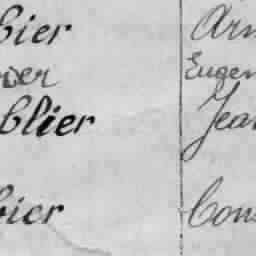 bier Arm
ver Eugen
blier Jean
bier Cons